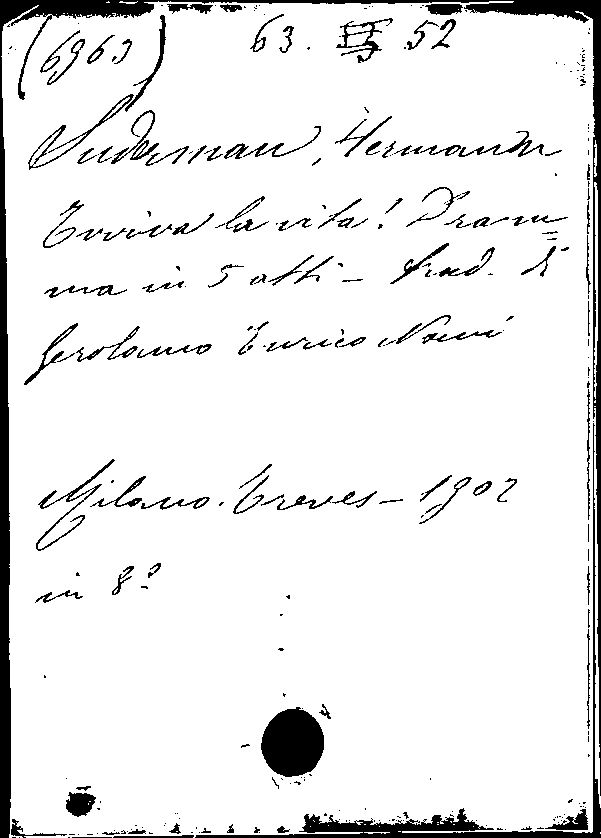 (6963) 63. 52
Suderman, Hermann
Evviva la vita! Dram=
ma in 5 atti - trad. di
Gerolamo Enrico Nani
Milano. Treves - 1902
in 8º